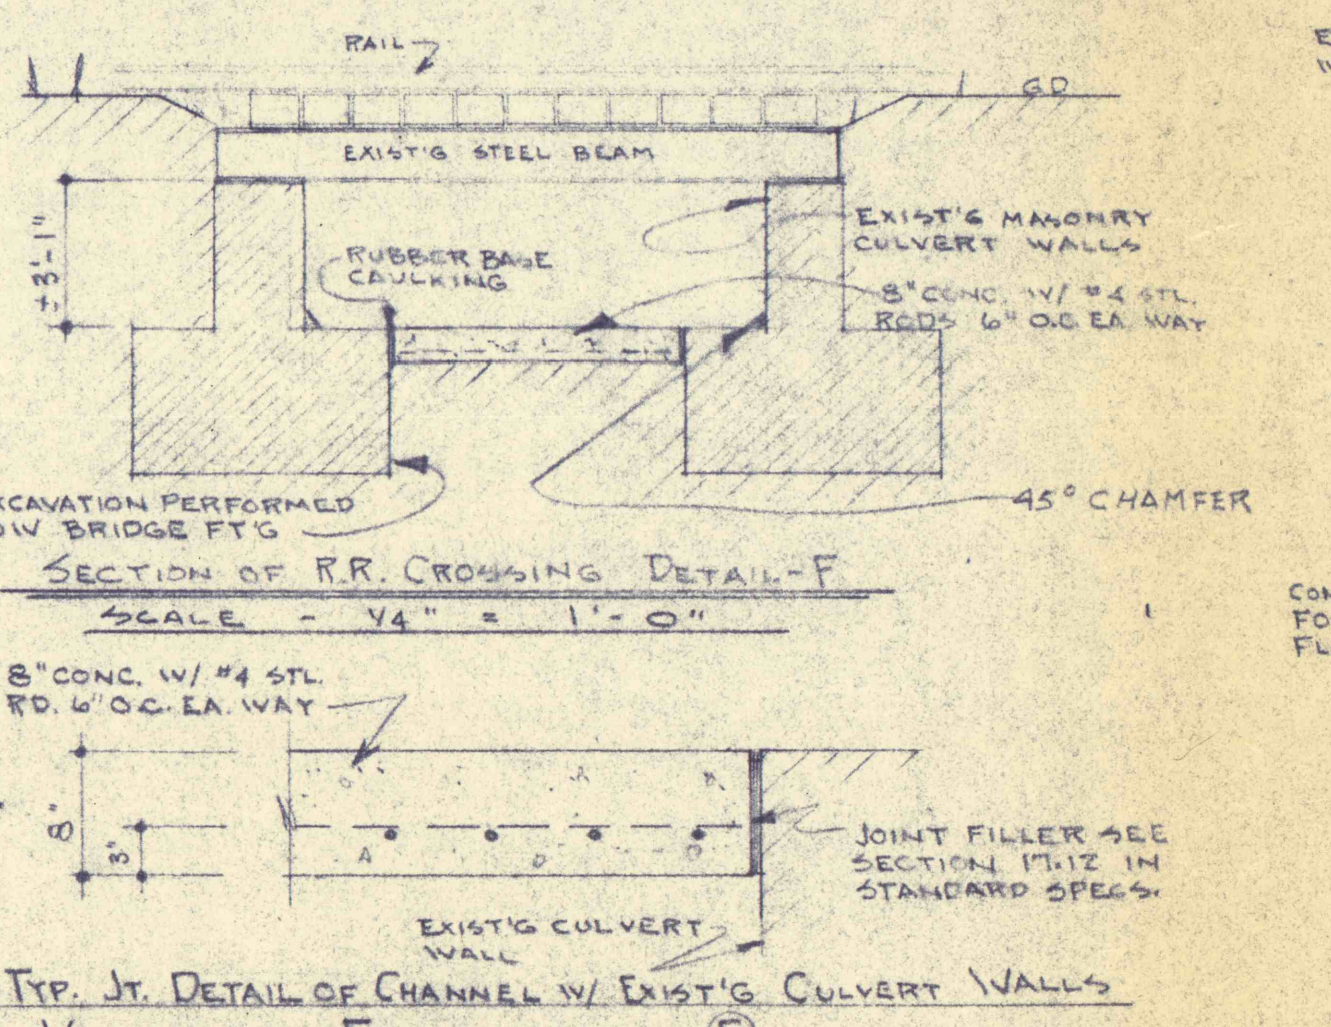 RAIL
GD
EXIST'G STEEL BEAM
± 3'-1"
EXIST'G MASONRY
CULVERT WALLS
RUBBER BASE
CAULKING
8" CONC. W/ #4 STL.
RODS 6" O.C. EA. WAY
XCAVATION PERFORMED
DIV BRIDGE FT'G
45° CHAMFER
SECTION OF R.R. CROSSING DETAIL-F
SCALE - 1/4" = 1'-0"
CON
FO
FL
8" CONC. W/ #4 STL.
RD. 6" O.C. EA. WAY
8"
3"
JOINT FILLER SEE
SECTION 17.12 IN
STANDARD SPECS.
EXIST'G CULVERT
WALL
TYP. JT. DETAIL OF CHANNEL W/ EXIST'G CULVERT WALLS